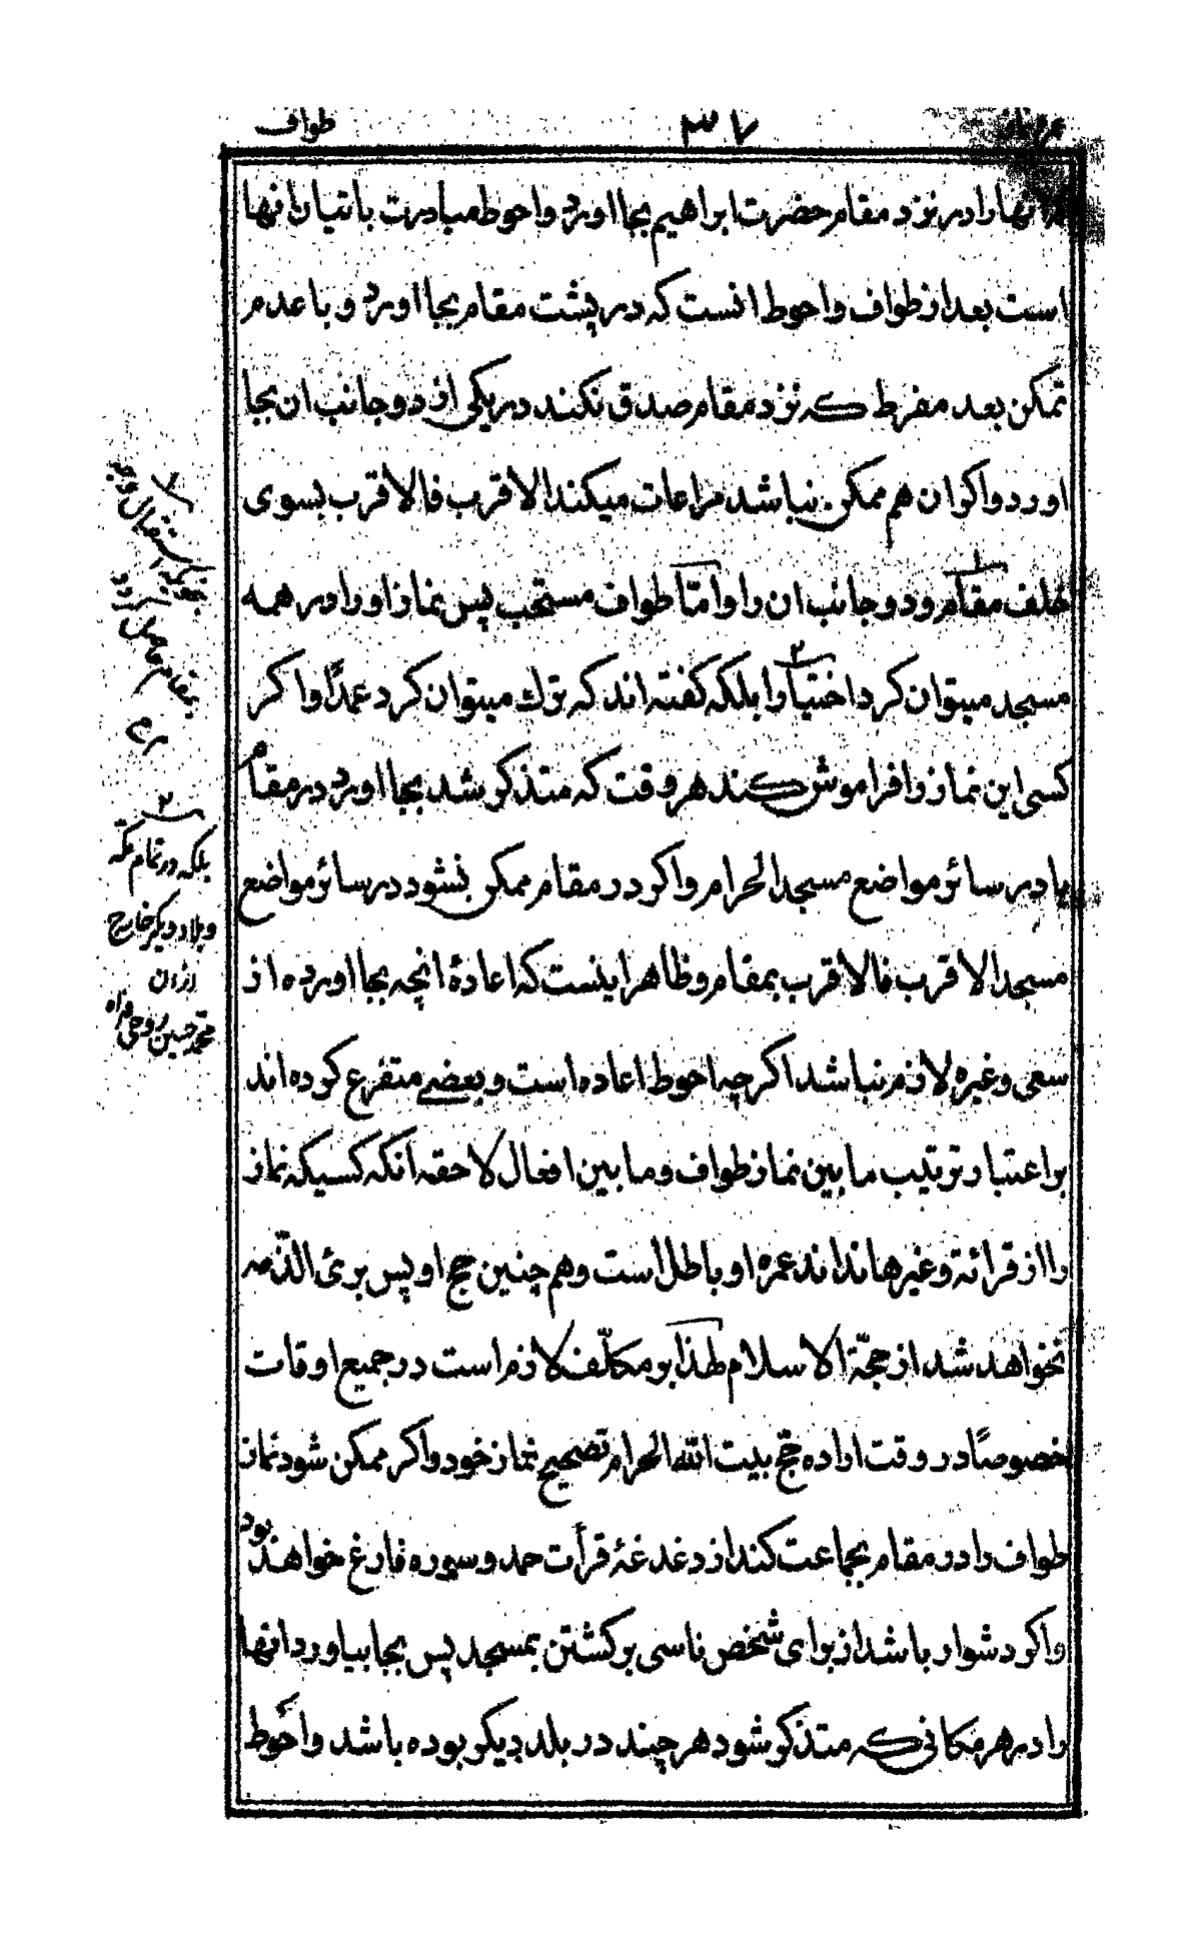 ۳۷
طواف
انها را در نزد مقام حضرت ابراهیم بجا اورد و احوط مبادرت باتیان انها
است بعد از طواف و احوط انست که در پشت مقام بجا اورد و با عدم
تمکن بعد مفرط که نزد مقام صدق نکند در یکی از دو جانب ان بجا
اورد و اکر ان هم ممکن نباشد مراعات میکند الاقرب فالاقرب بسوی
خلف مقام و دو جانب ان را و امّا طواف مستحب پس نماز او را در همه
مسجد میتوان کرد اختیارا بلکه کفته اند که ترک میتوان کرد عمدًا و اکر
کسی این نماز را فراموش کند هر وقت که متذکر شد بجا اورد در مقام
یا در سائر مواضع مسجد الحرام و اکر در مقام ممکن نشود در سائر مواضع
مسجد الاقرب فالاقرب بمقام و ظاهر اینست که اعادۀ انچه بجا اورده از
سعی و غیره لازم نباشد اکر چه احوط اعاده است و بعضے متفرع کرده اند
بر اعتبار ترتیب ما بین نماز طواف و ما بین افعال لاحقه آنکه کسیکه نماز
را از قرائة و غیرها نداند عمره او باطل است و هم چنین حج او پس برئ الذّمه
نخواهد شد از حجّة الاسلام لهذا بر مکلّف لازم است در جمیع اوقات
خصوصًا در وقت اراده حجّ بیت الله الحرام تصحیح نماز خود و اکر ممکن شود نماز
طواف را در مقام بجماعت کند از دغدغۀ قرأت حمد و سوره فارغ خواهد بود
و اکر دشوار باشد از برای شخص ناسی برکشتن بمسجد پس بجا بیاورد انها
را در هر مکانی که متذکر شود هر چند در بلد دیکر بوده باشد و احوط
۱
مقام حاصل کردد
۲
بلکه در تمام مکه
و بلاد دیکر خارج
از ان
محمد حسین روحی فداه